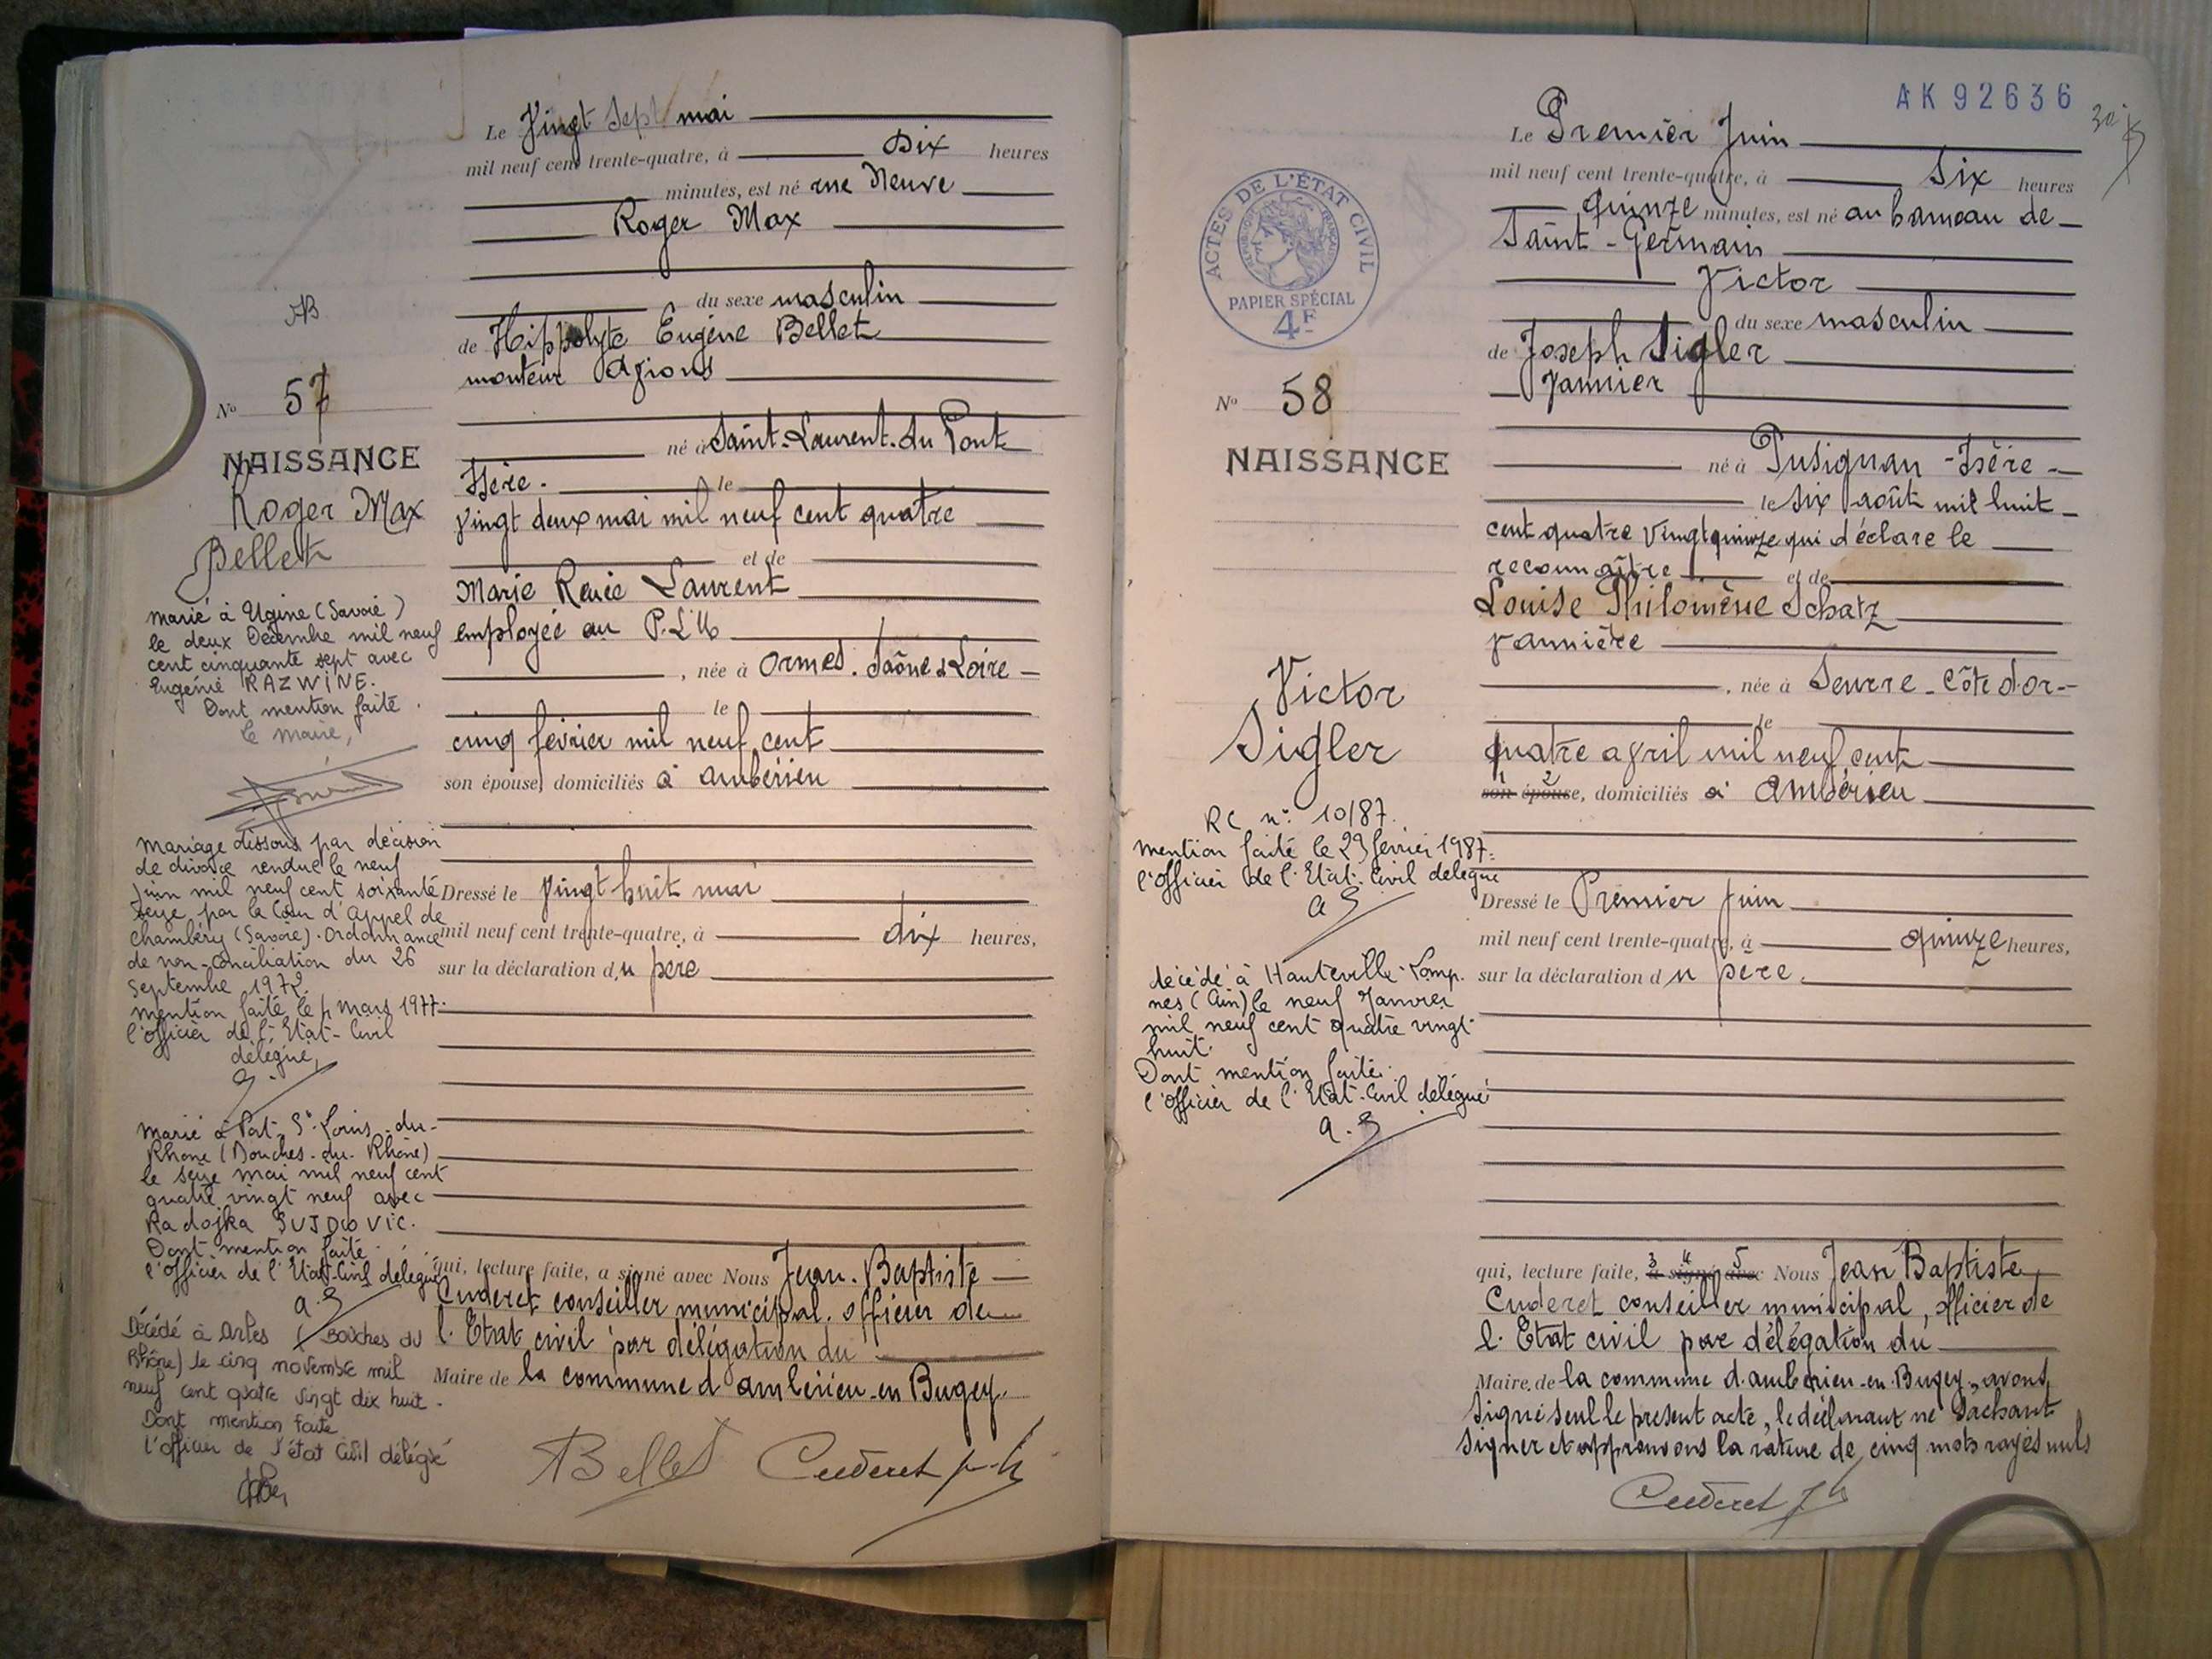 Le Vingt Sept mai
mil neuf cent trente-quatre, à Dix heures
minutes, est né rue Neuve
Roger Max
du sexe masculin
de Hippolyte Eugène Bellet
monteur Avions
né à Saint-Laurent-du Pont
Isère. le
Vingt deux mai mil neuf cent quatre
et de
Marie Renée Laurent
employée au
, née à Ormes. Saône & Loire
le
cinq février mil neuf cent
son épouse, domiciliés à ambérieu
Dressé le Vingt huit mai
mil neuf cent trente-quatre, à dix heures,
sur la déclaration du père
qui, lecture faite, a signé avec Nous Jean-Baptiste
Cuderet conseiller municipal. officier de
l'Etat civil par délégation du
Maire de la commune d'ambérieu-en Bugey.
Bellet Cuderet
No 57
NAISSANCE
Roger Max
Bellet
Marié à Ugine (Savoie)
le deux Décembre mil neuf
cent cinquante sept avec
Eugénie RAZWINE.
Dont mention faite.
Le Maire,
Mariage dissous par décision
de divorce rendue le neuf
Juin mil neuf cent soixante
seize par la Cour d'Appel de
Chambéry (Savoie). Ordonnance
de non-conciliation du 26
Septembre 1972.
Mention faite le 4 Mars 1977.
l'officier de l'Etat-Civil
délégué,
Marié à Port-St-Louis-du-
Rhône (Bouches-du-Rhône)
le seize mai mil neuf cent
quatre vingt neuf avec
Radojka
Dont mention faite.
l'officier de l'Etat-Civil délégué
Décédé à Arles (Bouches du
Rhône) le cinq novembre mil
neuf cent quatre vingt dix huit.
Dont mention faite
L'officier de l'état Civil délégué
AK92636
30
Le Premier Juin
mil neuf cent trente-quatre, à Six heures
quinze minutes, est né au hameau de
Saint-Germain
Victor
du sexe masculin
de Joseph Sigler
Vannier
né à Pusignan - Isère -
le Six août mil huit
cent quatre Vingt quinze qui déclare le
reconnaître et de
Louise Philomène Schatz
Vannière
, née à Seurre - Côte d'or -
le
quatre avril mil neuf cent
1 2
son épouse, domiciliés à Ambérieu
Dressé le Premier Juin
mil neuf cent trente-quatre, à quinze heures,
sur la déclaration du père.
3 4 5
qui, lecture faite, a signé avec Nous Jean Baptiste
Cuderet conseiller municipal, officier de
l'Etat civil par délégation du
Maire de la commune d'ambérieu-en-Bugey, avons
signé seul le présent acte, le déclarant ne sachant
signer et approuvons la rature de cinq mots rayés nuls
Cuderet
ACTES DE L'ÉTAT CIVIL
RÉPUBLIQUE FRANÇAISE
PAPIER SPÉCIAL
4F
No 58
NAISSANCE
Victor
Sigler
RC n° 10/87.
Mention faite le 23 février 1987.
l'officier de l'Etat-Civil délégué
décédé à Hauteville-Lomp.
nes (Ain) le neuf Janvier
mil neuf cent quatre vingt
huit.
Dont mention faite.
l'officier de l'Etat-Civil délégué